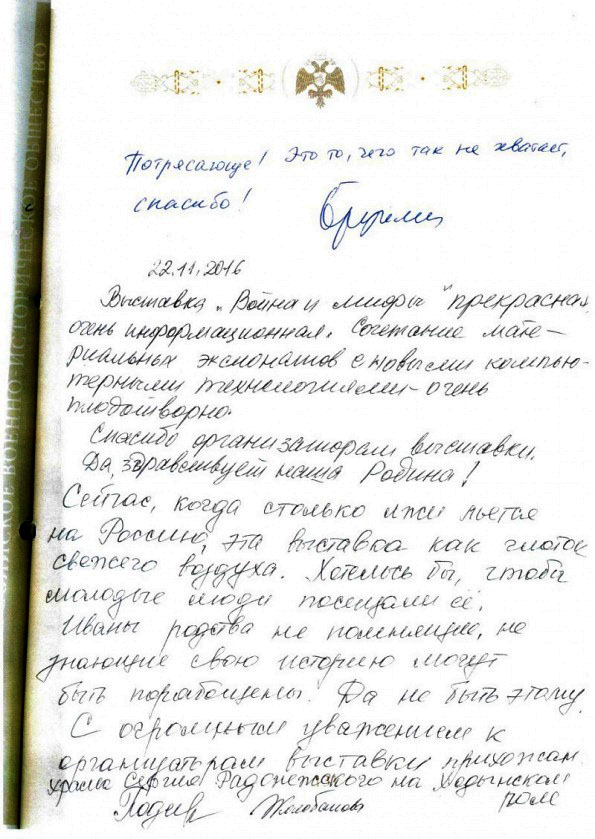 РОССИЙСКОЕ ВОЕННО-ИСТОРИЧЕСКОЕ ОБЩЕСТВО
Потрясающе! Это то, чего так не хватает,
спасибо!
22.11.2016
Выставка „Война и мифы" прекрасная,
очень информационная. Сочетание мате-
риальных экспонатов с новыми компью-
терными технологиями - очень
плодотворно.
Спасибо организаторам выставки.
Да здравствует наша Родина!
Сейчас, когда столько лжи льется
на Россию, эта выставка как глоток
свежего воздуха. Хотелось бы, чтобы
молодые люди посещали её.
Иваны родства не помнящие, не
знающие свою историю могут
быть порабощены. Да не быть этому
С огромным уважением к
организаторам выставки прихожан
храма Сергия Радонежского на Ходынском
поле